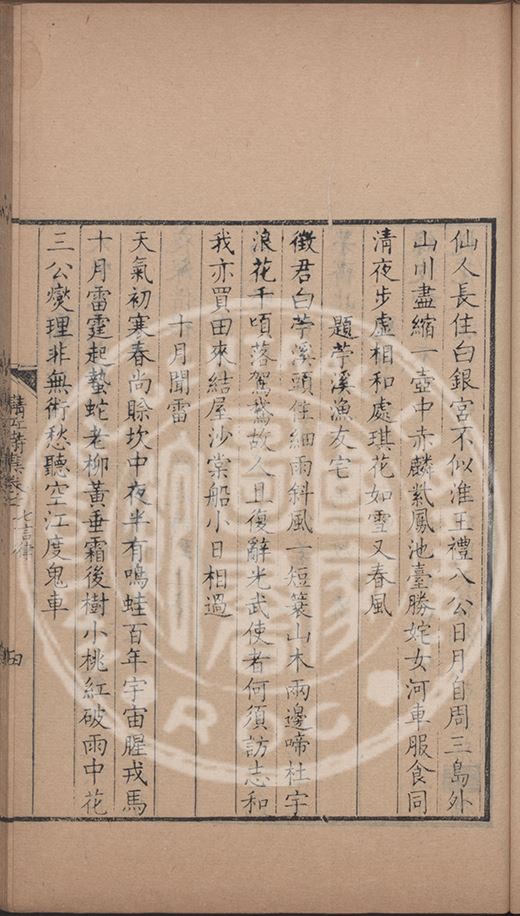 仙人長住白銀宮不似淮王禮八公日月自周三島外
山川盡縮一壺中赤麟紫鳳池臺勝姹女河車服食同
清夜步虛相和處琪花如雪又春風
題苧溪漁友宅
徵君白苧溪頭住細雨斜風一短簑山木兩邊啼杜宇
浪花千頃落駕鵞故人且復辭光武使者何須訪志和
我亦買田來結屋沙棠船小日相過
十月聞雷
天氣初寒春尚賒坎中夜半有鳴蛙百年宇宙腥戎馬
十月雷霆起蟄蛇老柳黃垂霜後樹小桃紅破雨中花
三公爕理非無術愁聽空江度鬼車
集卷之 七言律